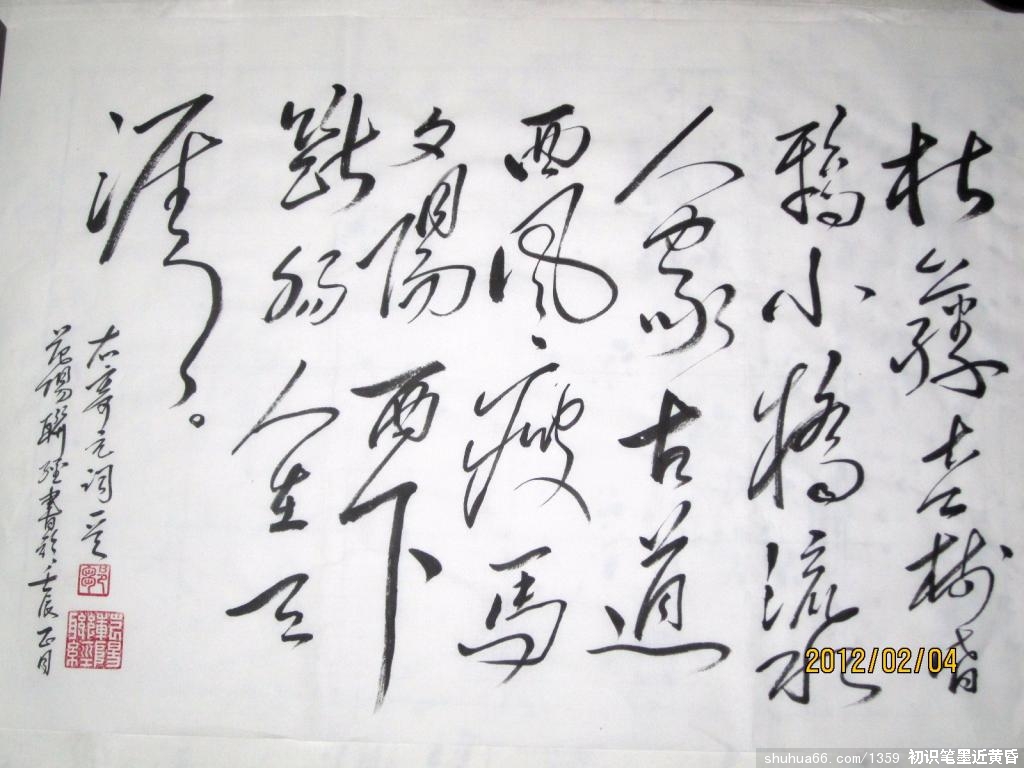 枯藤老樹昏
鴉小橋流水
人家古道
西風瘦馬
夕陽西下
斷腸人在天
涯。
右寄元詞一
聯經書於壬辰正月
2012/02/04
shuhua66.com/1359 初识笔墨近黄昏